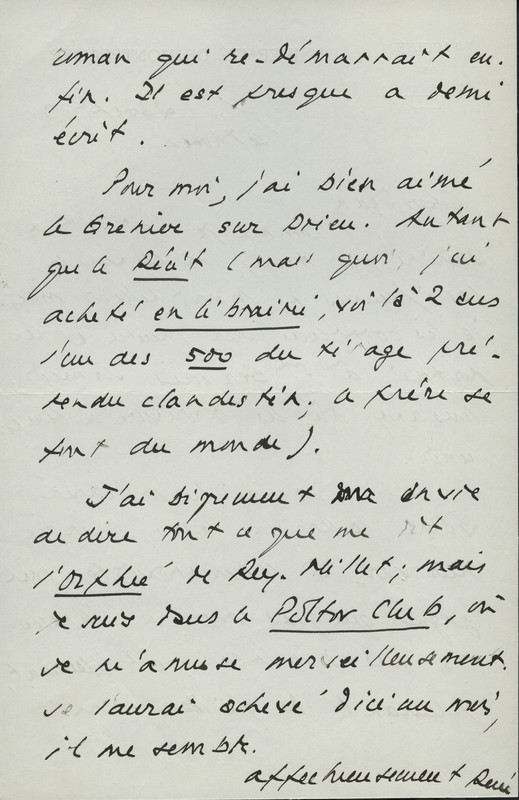 roman qui re-démarrait en-
fin. Il est presque a demi
écrit.
Pour moi, j'ai bien aimé
le Grenier sur Drieu. Autant
que le Récit (mais quoi, j'ai
acheté en librairie, voilà 2 ans
l'un des 500 du tirage pré-
tendu clandestin; a frére se
font du monde).
J'ai bigrement envie
de dire tout ce que me dit
l'Orphée de Rey-Millet; mais
je suis dans le Poltor Club, où
je m'amuse merveilleusement.
je l'aurai achevé d'ici un mois,
il me semble.
affectueusement René